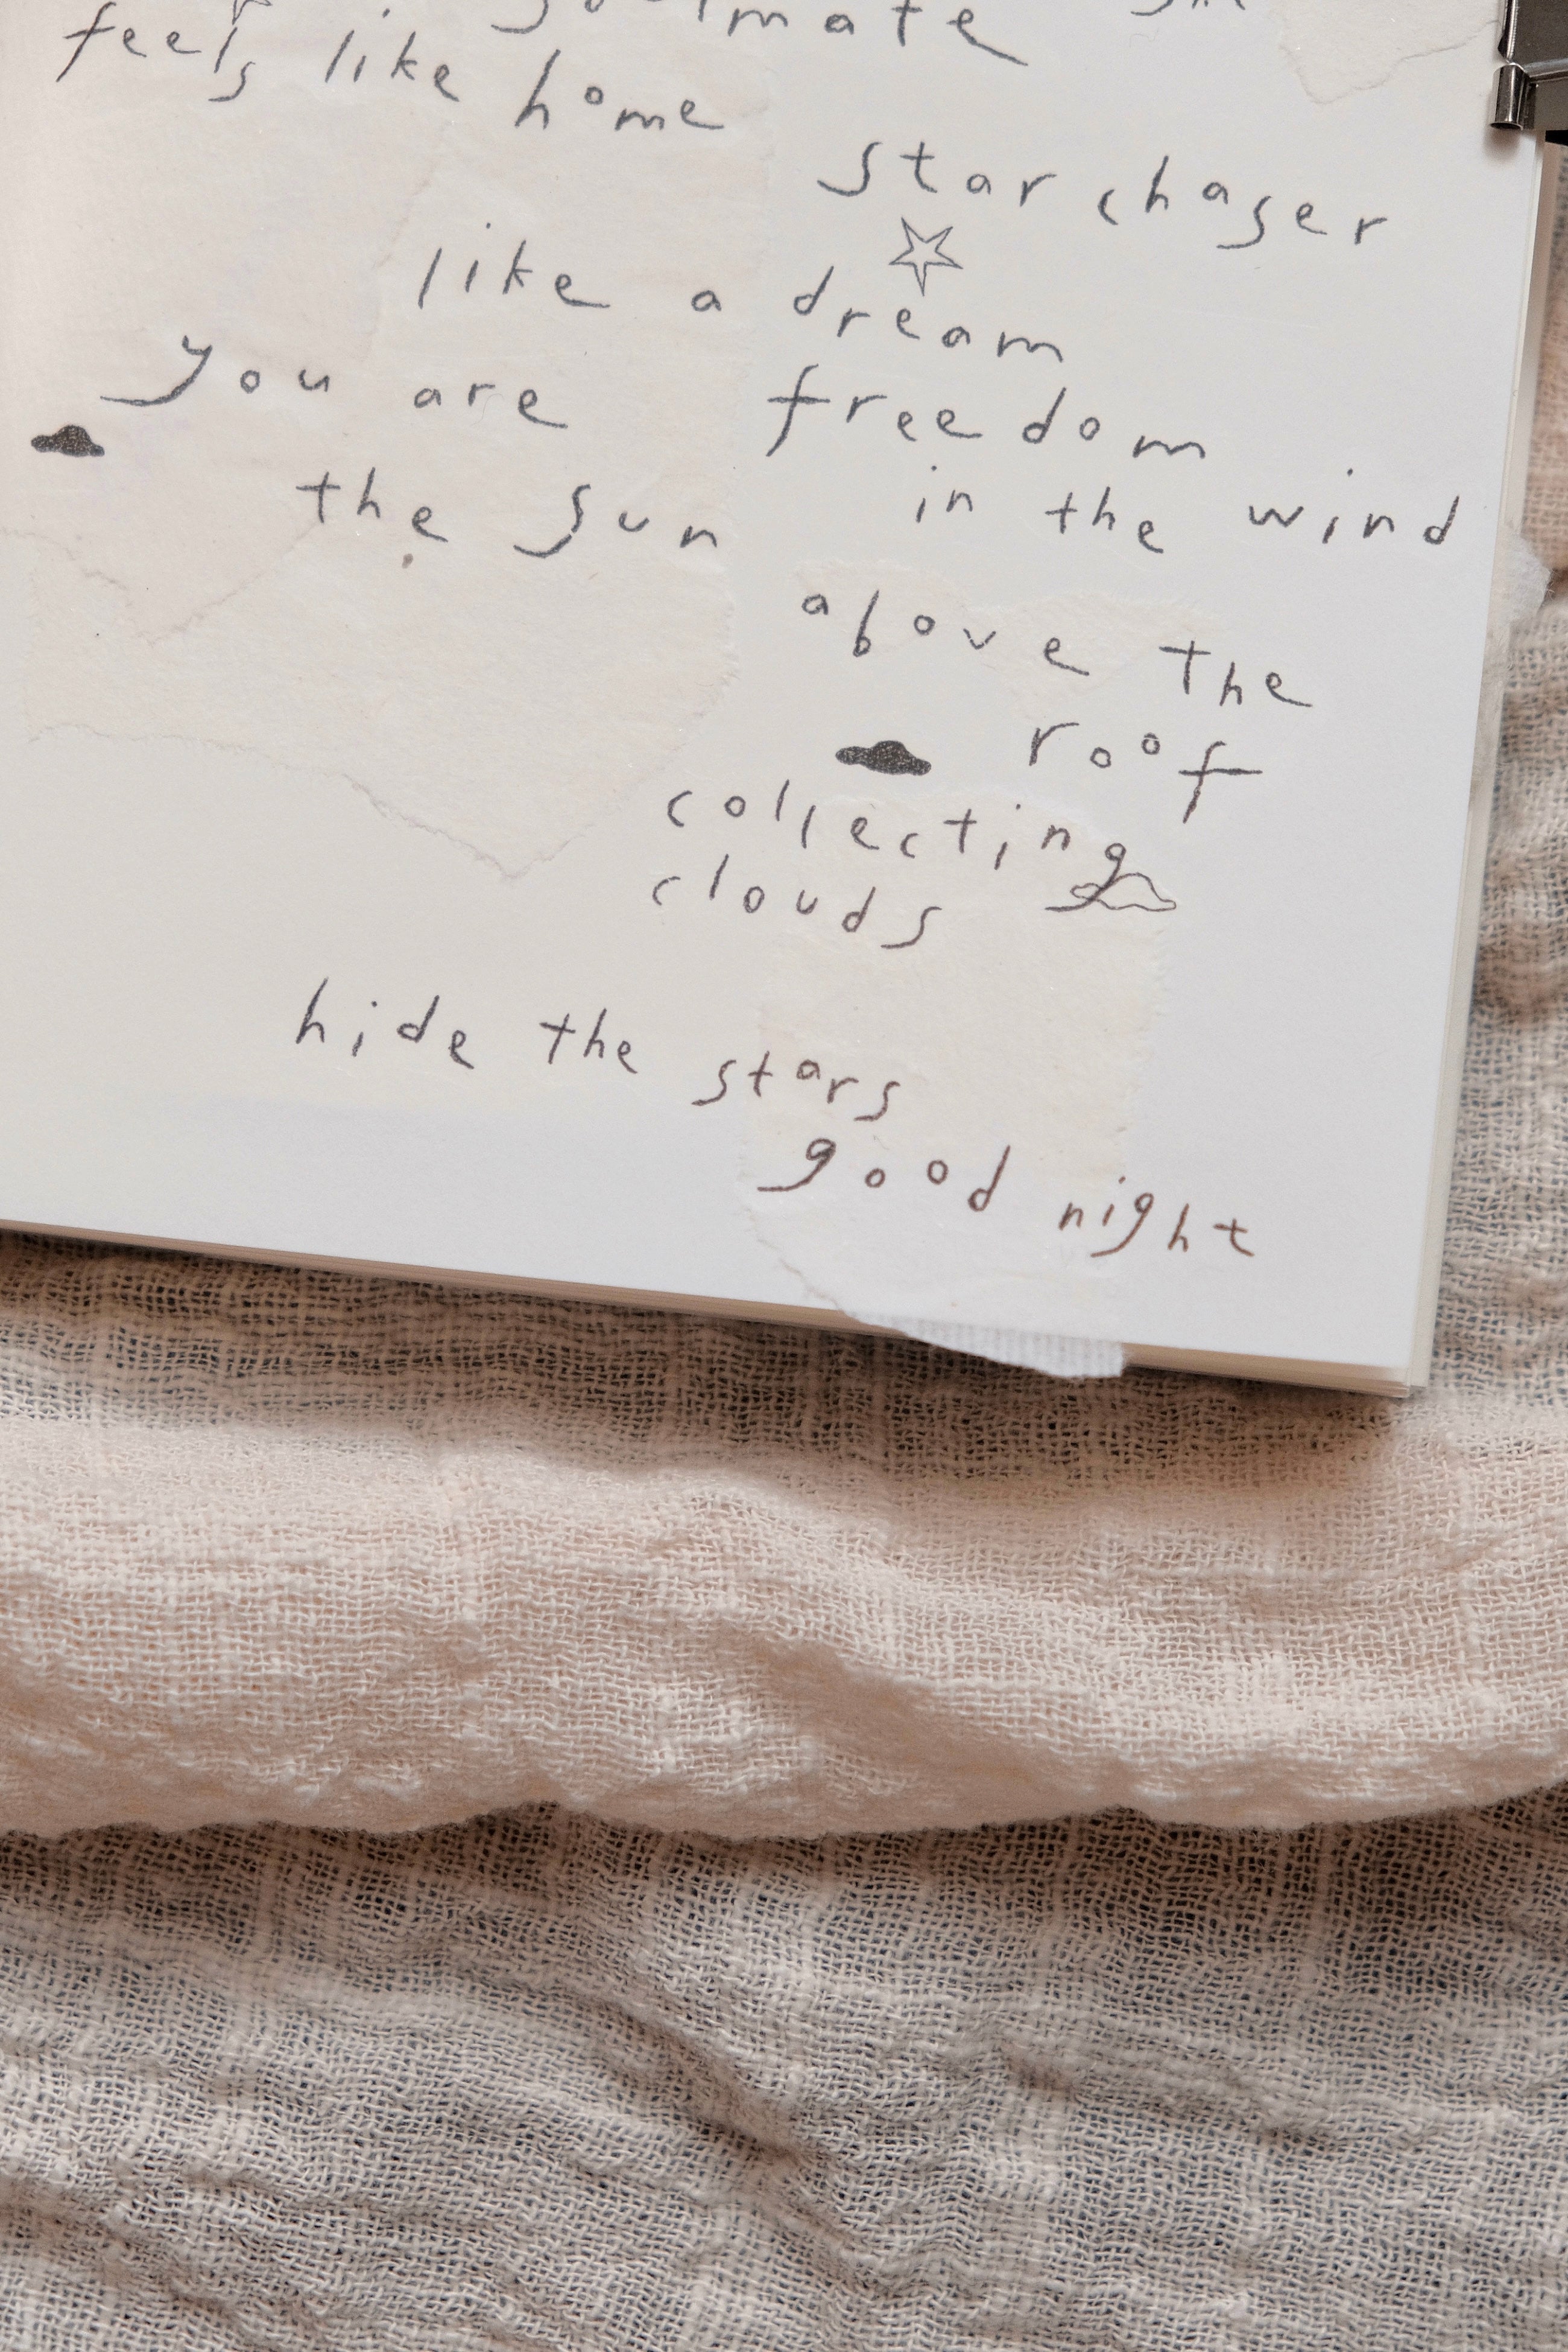 soulmate
feels like home
starchaser
like a dream
you are
freedom
the sun
in the wind
above the
roof
collecting
clouds
hide the stars
good night